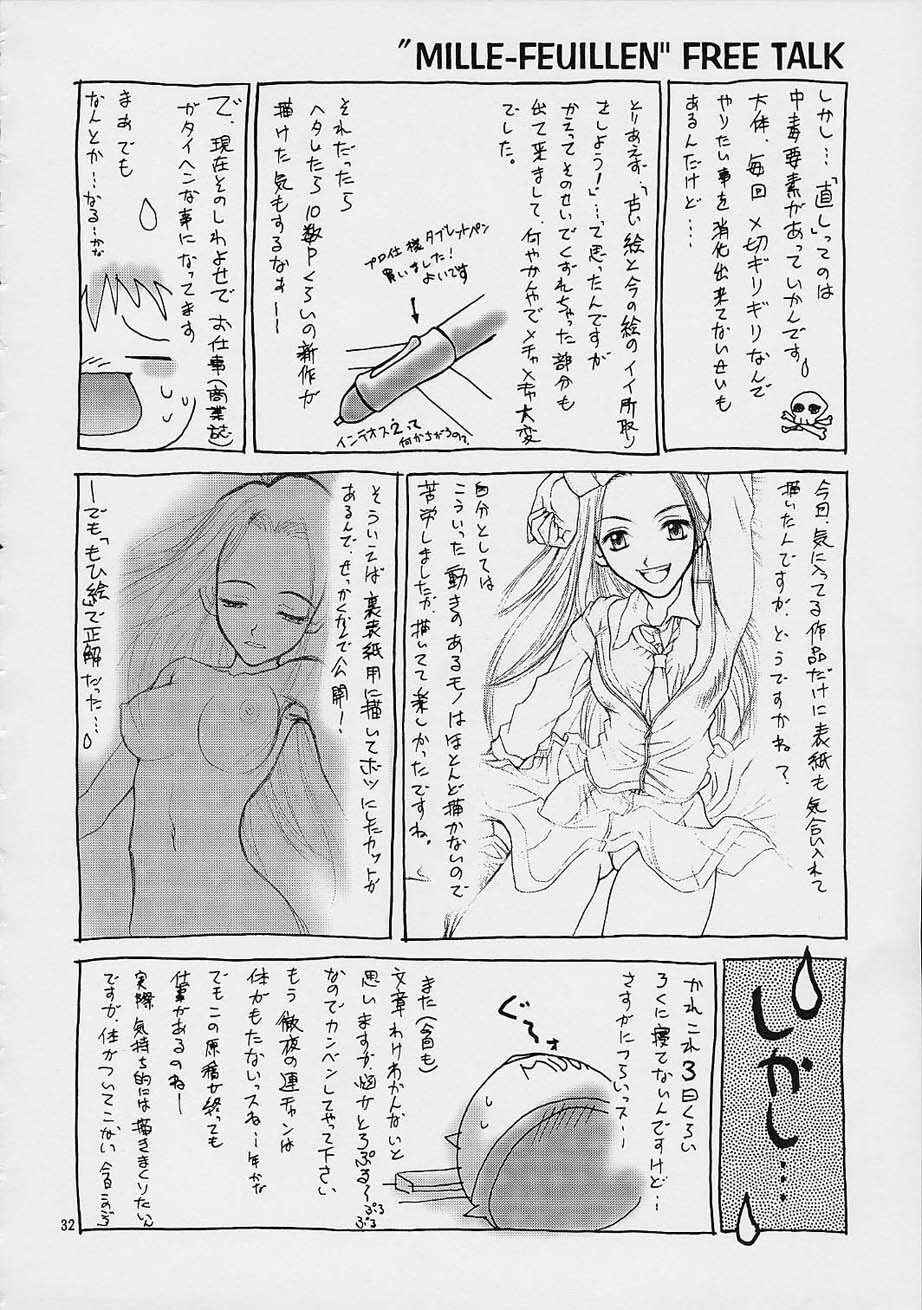 "MILLE-FEUILLEN" FREE TALK
しかし…「直し」ってのは
中毒要素があっていかんです。
大体、毎回〆切ギリギリなんで
やりたい事を消化出来てないせいも
あるんだけど…
とりあえず、「古い絵と今の絵のイイ所取り
さしよう!」…って思ったんですが
かえってそのせいでくずれちゃった部分も
出て来まして、何やかんやでメチャメチャ大変
でした。
プロ仕様タブレットペン
買いました!
よいです
インテオス2って
何かさがうので
それだったら
ヘタしたら10数Pくらいの新作が
描けた気もするなぁーー
で、現在そのしわよせでお仕事(商業誌)
がタイヘンな事になってます
まぁでも
なんとか…なる…かな
今回、気に入ってる作品だけに表紙も気合い入れて
描いたんですが、どうですかね?
自分としては
こういった動きのあるモノはほとんど描かないので
苦労しましたが、描いてて楽しかったですね。
そういえば裏表紙用に描いてボツにしたカットが
あるんで、せっかくなんで公開!
ーでも「もひ絵」で正解だった…
しかし…
かれこれ3日くらい
ろくに寝てないんですけど…
さすがにつらいっス〜
ぐる
また(今回も)
文章わけわかんないと
思いますが、脳女とろぷる〜ぷるぷる
なのでカンベンしてやって下さい
もう徹夜の連チャンは
体がもたないっスね〜年かな
でもこの原稿終っても
仕事があるのねー
実際気持ち的には描ききりたいん
ですが、体がついてこない今日このごろ
32